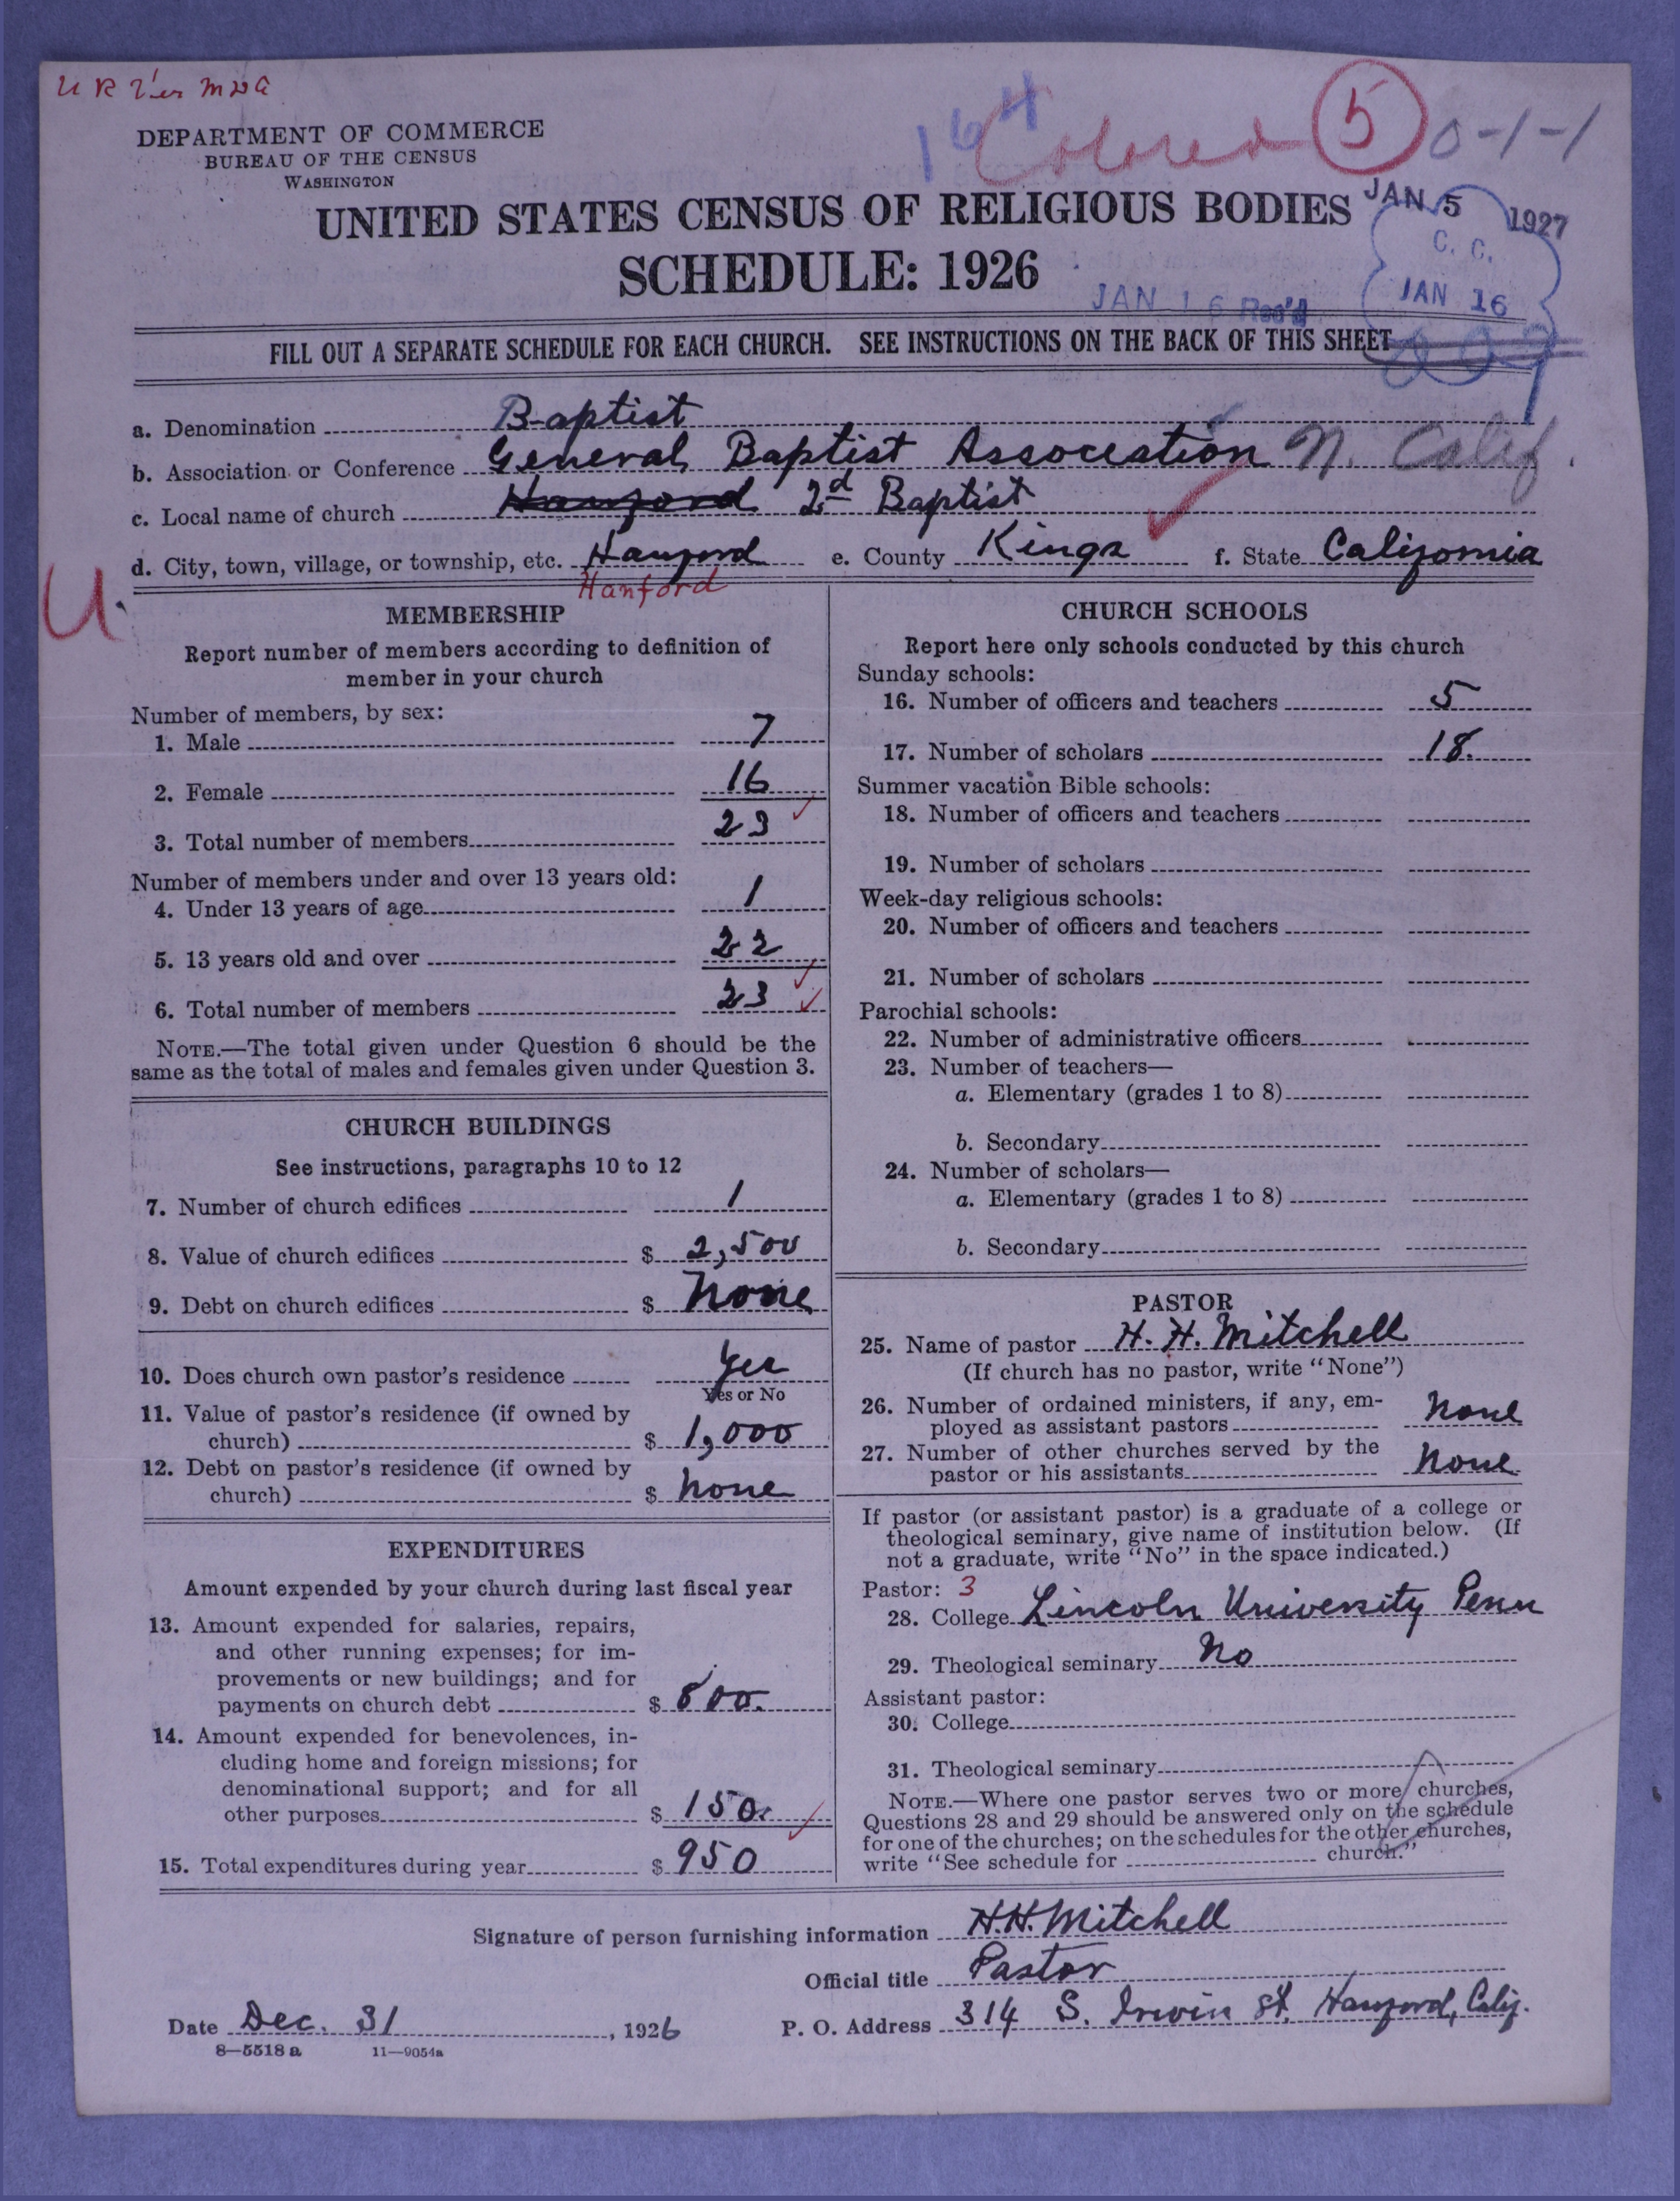 Colored 5 0-1-1
164
DEPARTMENT OF COMMERCE
BUREAU OF THE CENSUS
WASHINGTON
UNITED STATES CENSUS OF RELIGIOUS BODIES
SCHEDULE: 1926
JAN 5 1927
C. C.
JAN 16
JAN 16 Rec'd
FILL OUT A SEPARATE SCHEDULE FOR EACH CHURCH. SEE INSTRUCTIONS ON THE BACK OF THIS SHEET
a. Denomination Baptist
b. Association or Conference General Baptist Association N. Calif.
c. Local name of church Hanford 2d Baptist
d. City, town, village, or township, etc. Hanford e. County Kings f. State California
Hanford
U.
MEMBERSHIP
Report number of members according to definition of
member in your church
Number of members, by sex:
1. Male 7
2. Female 16
3. Total number of members 23
Number of members under and over 13 years old:
4. Under 13 years of age 1
5. 13 years old and over 22
6. Total number of members 23
NOTE.—The total given under Question 6 should be the
same as the total of males and females given under Question 3.
CHURCH BUILDINGS
See instructions, paragraphs 10 to 12
7. Number of church edifices 1
8. Value of church edifices $ 2,500
9. Debt on church edifices $ None
10. Does church own pastor's residence Yes
Yes or No
11. Value of pastor's residence (if owned by
church) $ 1,000
12. Debt on pastor's residence (if owned by
church) $ None
EXPENDITURES
Amount expended by your church during last fiscal year
13. Amount expended for salaries, repairs,
and other running expenses; for im-
provements or new buildings; and for
payments on church debt $ 800.
14. Amount expended for benevolences, in-
cluding home and foreign missions; for
denominational support; and for all
other purposes $ 150.
15. Total expenditures during year $ 950
CHURCH SCHOOLS
Report here only schools conducted by this church
Sunday schools:
16. Number of officers and teachers 5
17. Number of scholars 18.
Summer vacation Bible schools:
18. Number of officers and teachers
19. Number of scholars
Week-day religious schools:
20. Number of officers and teachers
21. Number of scholars
Parochial schools:
22. Number of administrative officers
23. Number of teachers—
a. Elementary (grades 1 to 8)
b. Secondary
24. Number of scholars—
a. Elementary (grades 1 to 8)
b. Secondary
PASTOR
25. Name of pastor H. H. Mitchell
(If church has no pastor, write "None")
26. Number of ordained ministers, if any, em-
ployed as assistant pastors None
27. Number of other churches served by the
pastor or his assistants None
If pastor (or assistant pastor) is a graduate of a college or
theological seminary, give name of institution below. (If
not a graduate, write "No" in the space indicated.)
Pastor: 3
28. College Lincoln University Penn
29. Theological seminary No
Assistant pastor:
30. College
31. Theological seminary
NOTE.—Where one pastor serves two or more churches,
Questions 28 and 29 should be answered only on the schedule
for one of the churches; on the schedules for the other churches,
write "See schedule for church."
Signature of person furnishing information H.H. Mitchell
Official title Pastor
Date Dec. 31, 1926 P. O. Address 314 S. Irwin St. Hanford, Calif.
8—5518 a 11—9054a